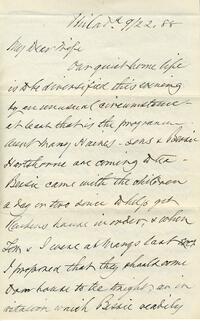 Philada 9/22. 88
My Dear Wife
Our quiet home life
is to be diversified this evening
by an unusual circumstance -
at least that is the programme
Aunt Mary Haines - sons & Bessie
Hartshorne are coming to tea
Bessie came with the children
a day or two since to help get
house in order, & when
Tom & I were at Marys last
I proposed that they should come
to our house to tea tonight, an in
vitation which Bessie readily